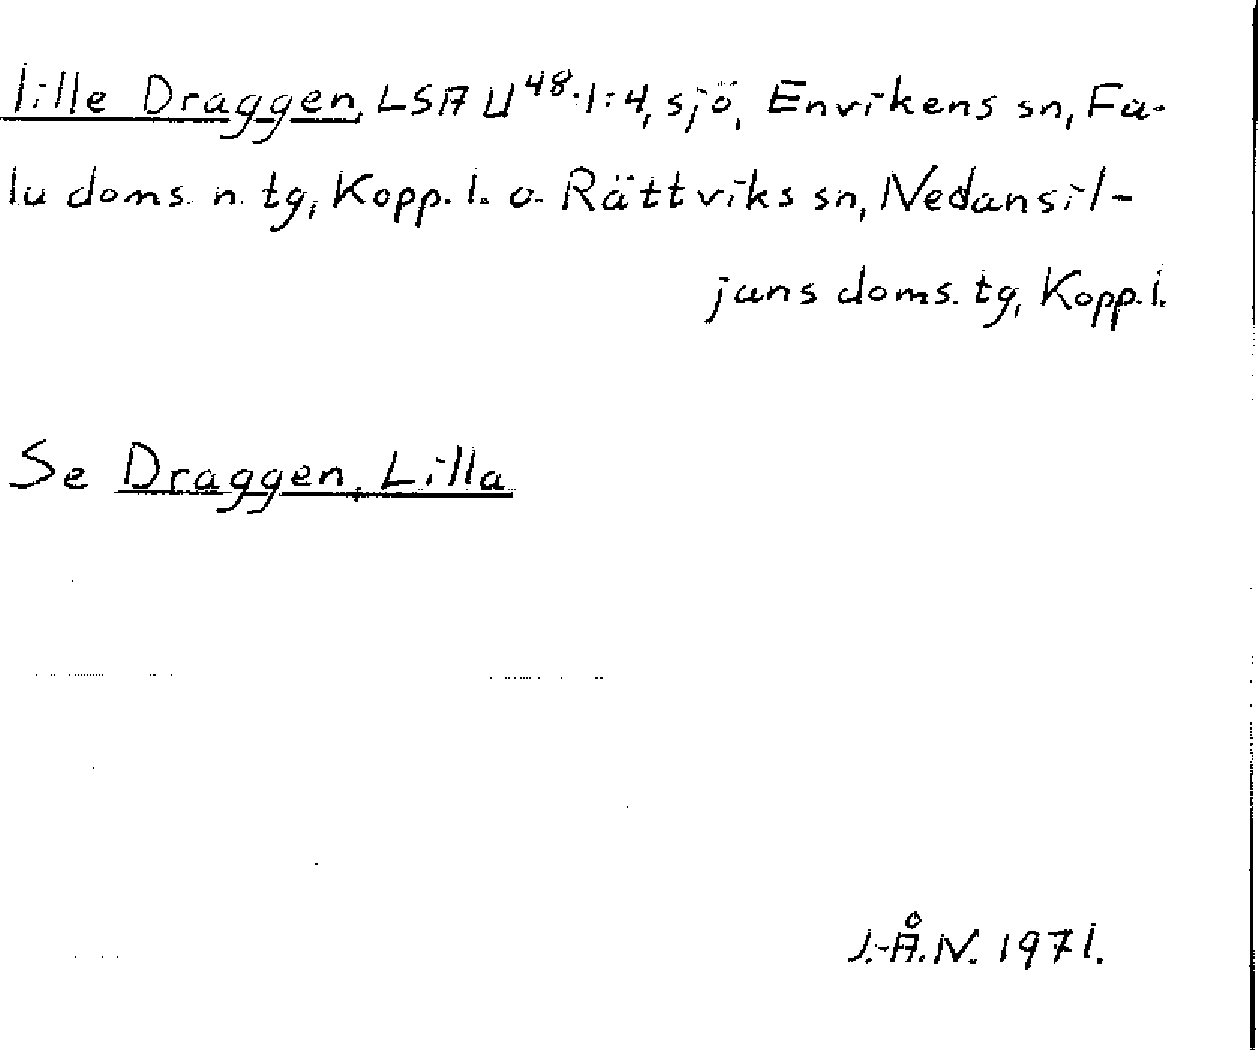 lille Draggen, LSA U48-1:4, sjö, Envikens sn, Fa-
lu doms. n. tg, Kopp. l. o. Rättviks sn, Nedansil-
jans doms. tg, Kopp. l.
Se Draggen, Lilla
J.-Å.N. 1971.